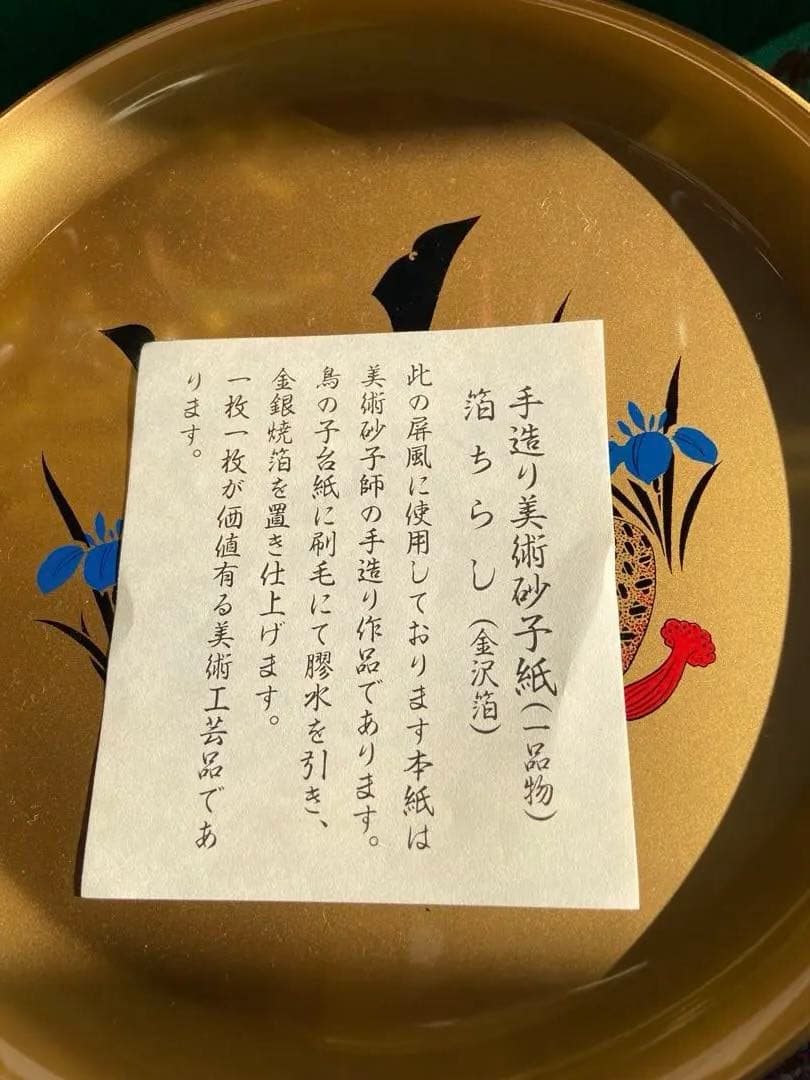 手造り美術砂子紙(一品物)
箔ちらし(金沢箔)
此の屏風に使用しております本紙は
美術砂子師の手造り作品であります。
鳥の子台紙に刷毛にて膠水を引き、
金銀焼箔を置き仕上げます。
一枚一枚が価値有る美術工芸品であ
ります。